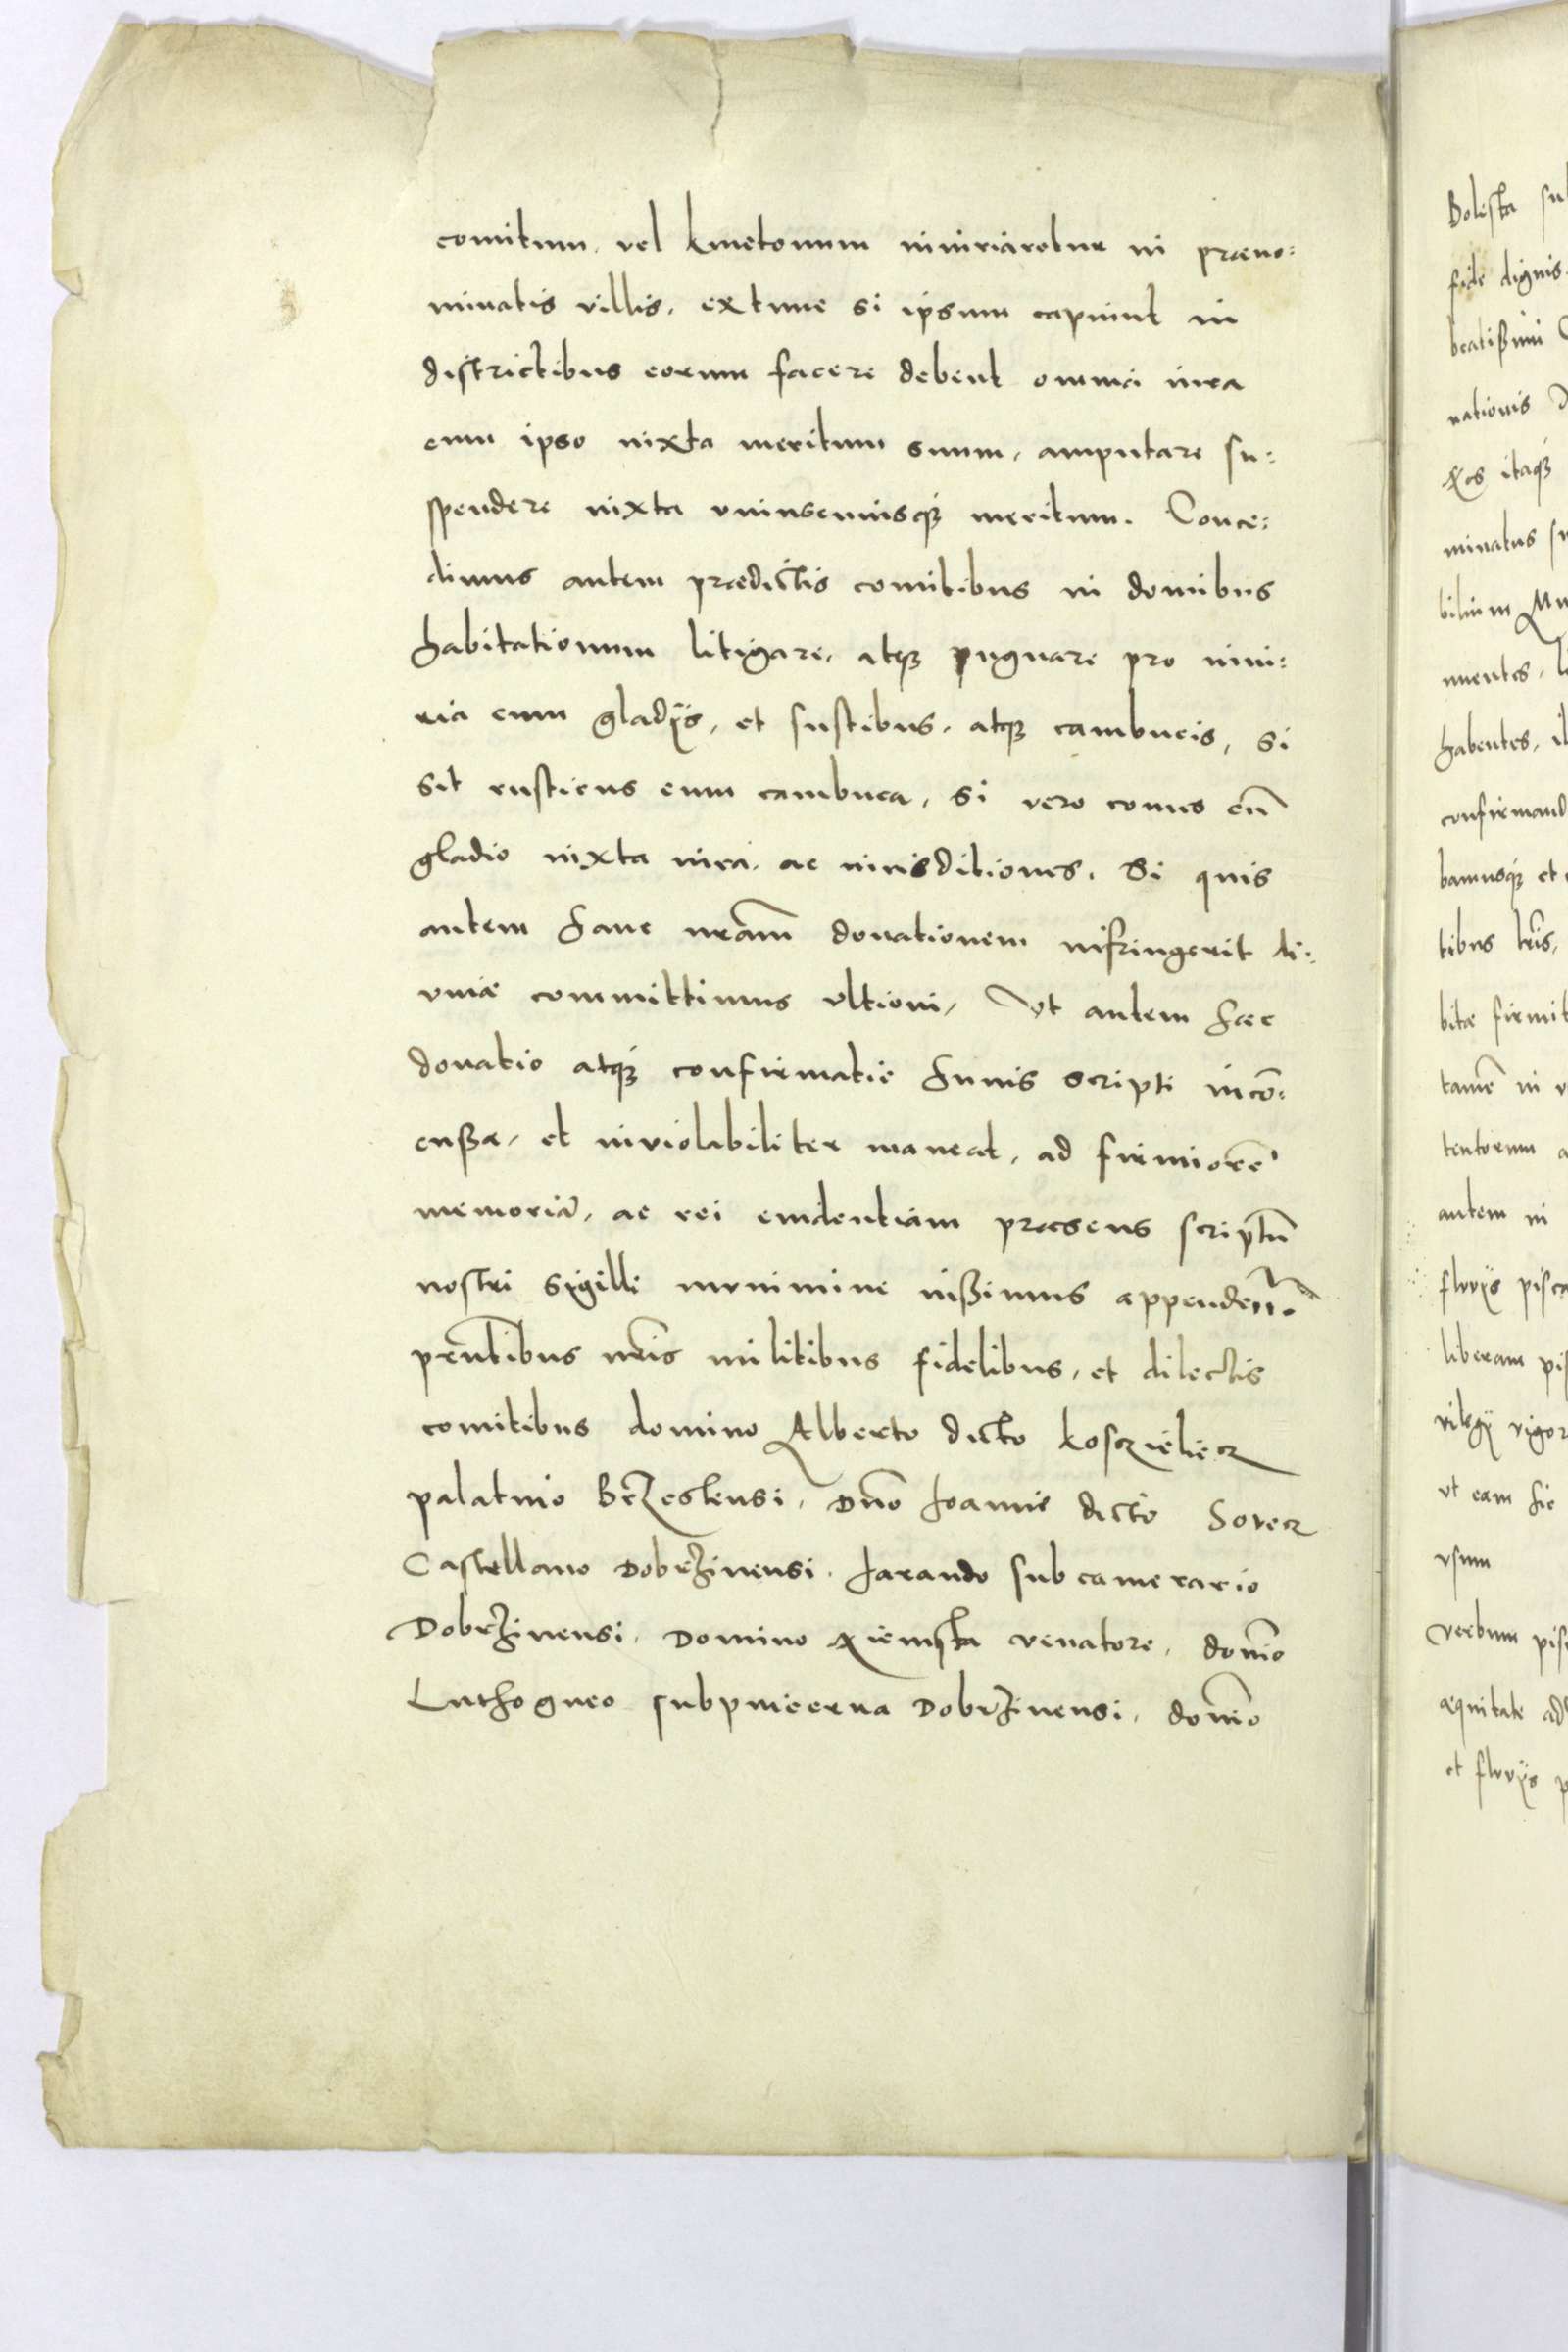 comitum, vel kmetonum iniuriaretur in præno:
minatis villis, extunc si ipsum capiunt in
districtibus eorum facere debent omnia iura
cum ipso iuxta meritum suum, amputare su:
spendere iuxta vniuscuiusq; meritum. Conce:
dimus autem prædictis comitibus in domibus
habitationum litigare, atq; pugnare pro iniu:
ria cum gladijs, et fustibus, atq; cambucis, si
sit rusticus cum cambuca, si vero comes cū
gladio iuxta iura, ac iurisditiones. Si quis
autem hanc nram̄ donationem infringerit di:
uinæ committimus vltioni, Vt autem hæc
donatio atq; confirmatio huius scripti incō:
cussa, et inviolabiliter maneat, ad firmiorē
memoriā, ac rei euidentiam præsens scriptū
nostri sigilli munimine iussimus appenden̄.
prn̄tibus nr̄is militibus fidelibus, et dilectis
comitibus domino Alberto dicto Kosczielecz
palatino Brzestensi, Dn̄o Joanne dicto Sovecz
Castellano Dobrzinensi, Jarando subcamerario
Dobrzinensi, Domino Ziemsta venatore, dom̄io
Luthogneo subpincerna Dobrzinensi, dom̄io
Bolesta
fide dignis
beatissimi
nationis
itaq;
minatus
bilium
nuentes,
habentes,
confirmand
bamusq; et
tibus lr̄is,
bitæ firmit
tamē in
tentorum
autem in
fluvijs pisca
liberam pis
vilegij vigor
vt eam sic
vsum
verbum pis
æquitate ad
et fluvijs p